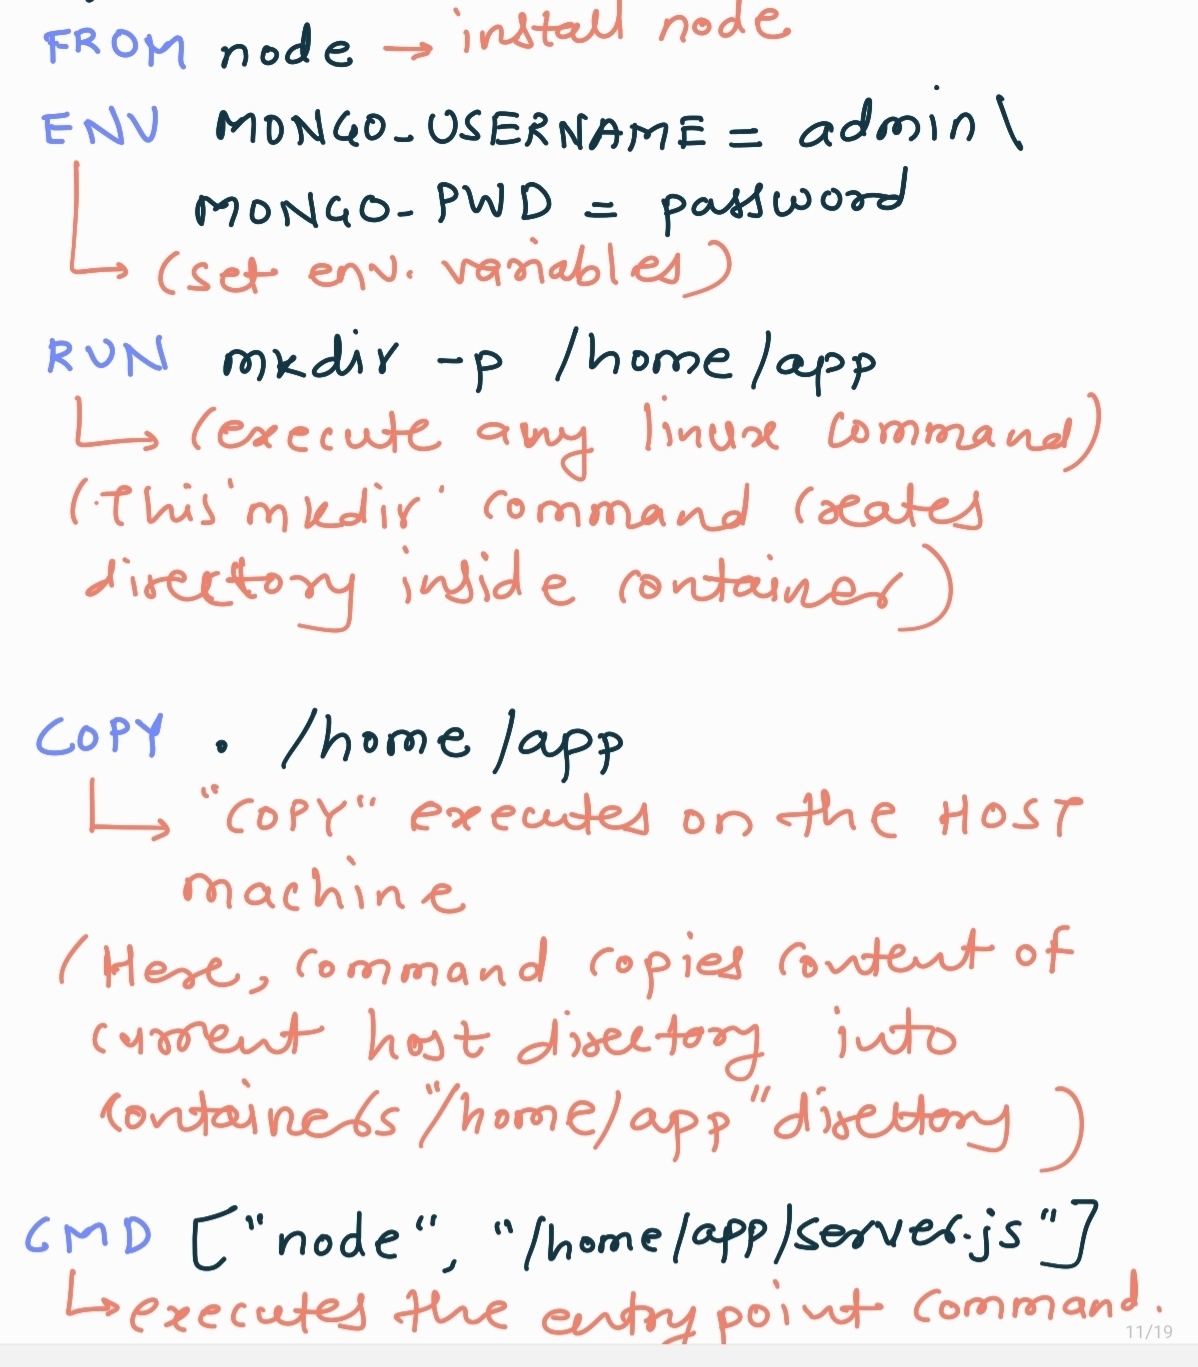 FROM node → install node
ENV MONGO_USERNAME = admin \
MONGO_PWD = password
(set env. variables)
RUN mkdir -p /home/app
(execute any linux command)
(This 'mkdir' command creates
directory inside container)
COPY . /home/app
"COPY" executes on the HOST
machine
(Here, command copies content of
current host directory into
containers "/home/app" directory)
CMD ["node", "/home/app/server.js"]
executes the entry point command.
11/19